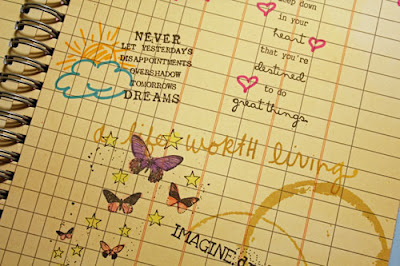 NEVER
LET YESTERDAYS
DISAPPOINTMENTS
OVERSHADOW
TOMORROWS
DREAMS
down
in your
heart
that you're
destined
to do
great things.
a life worth living
IMAGINE